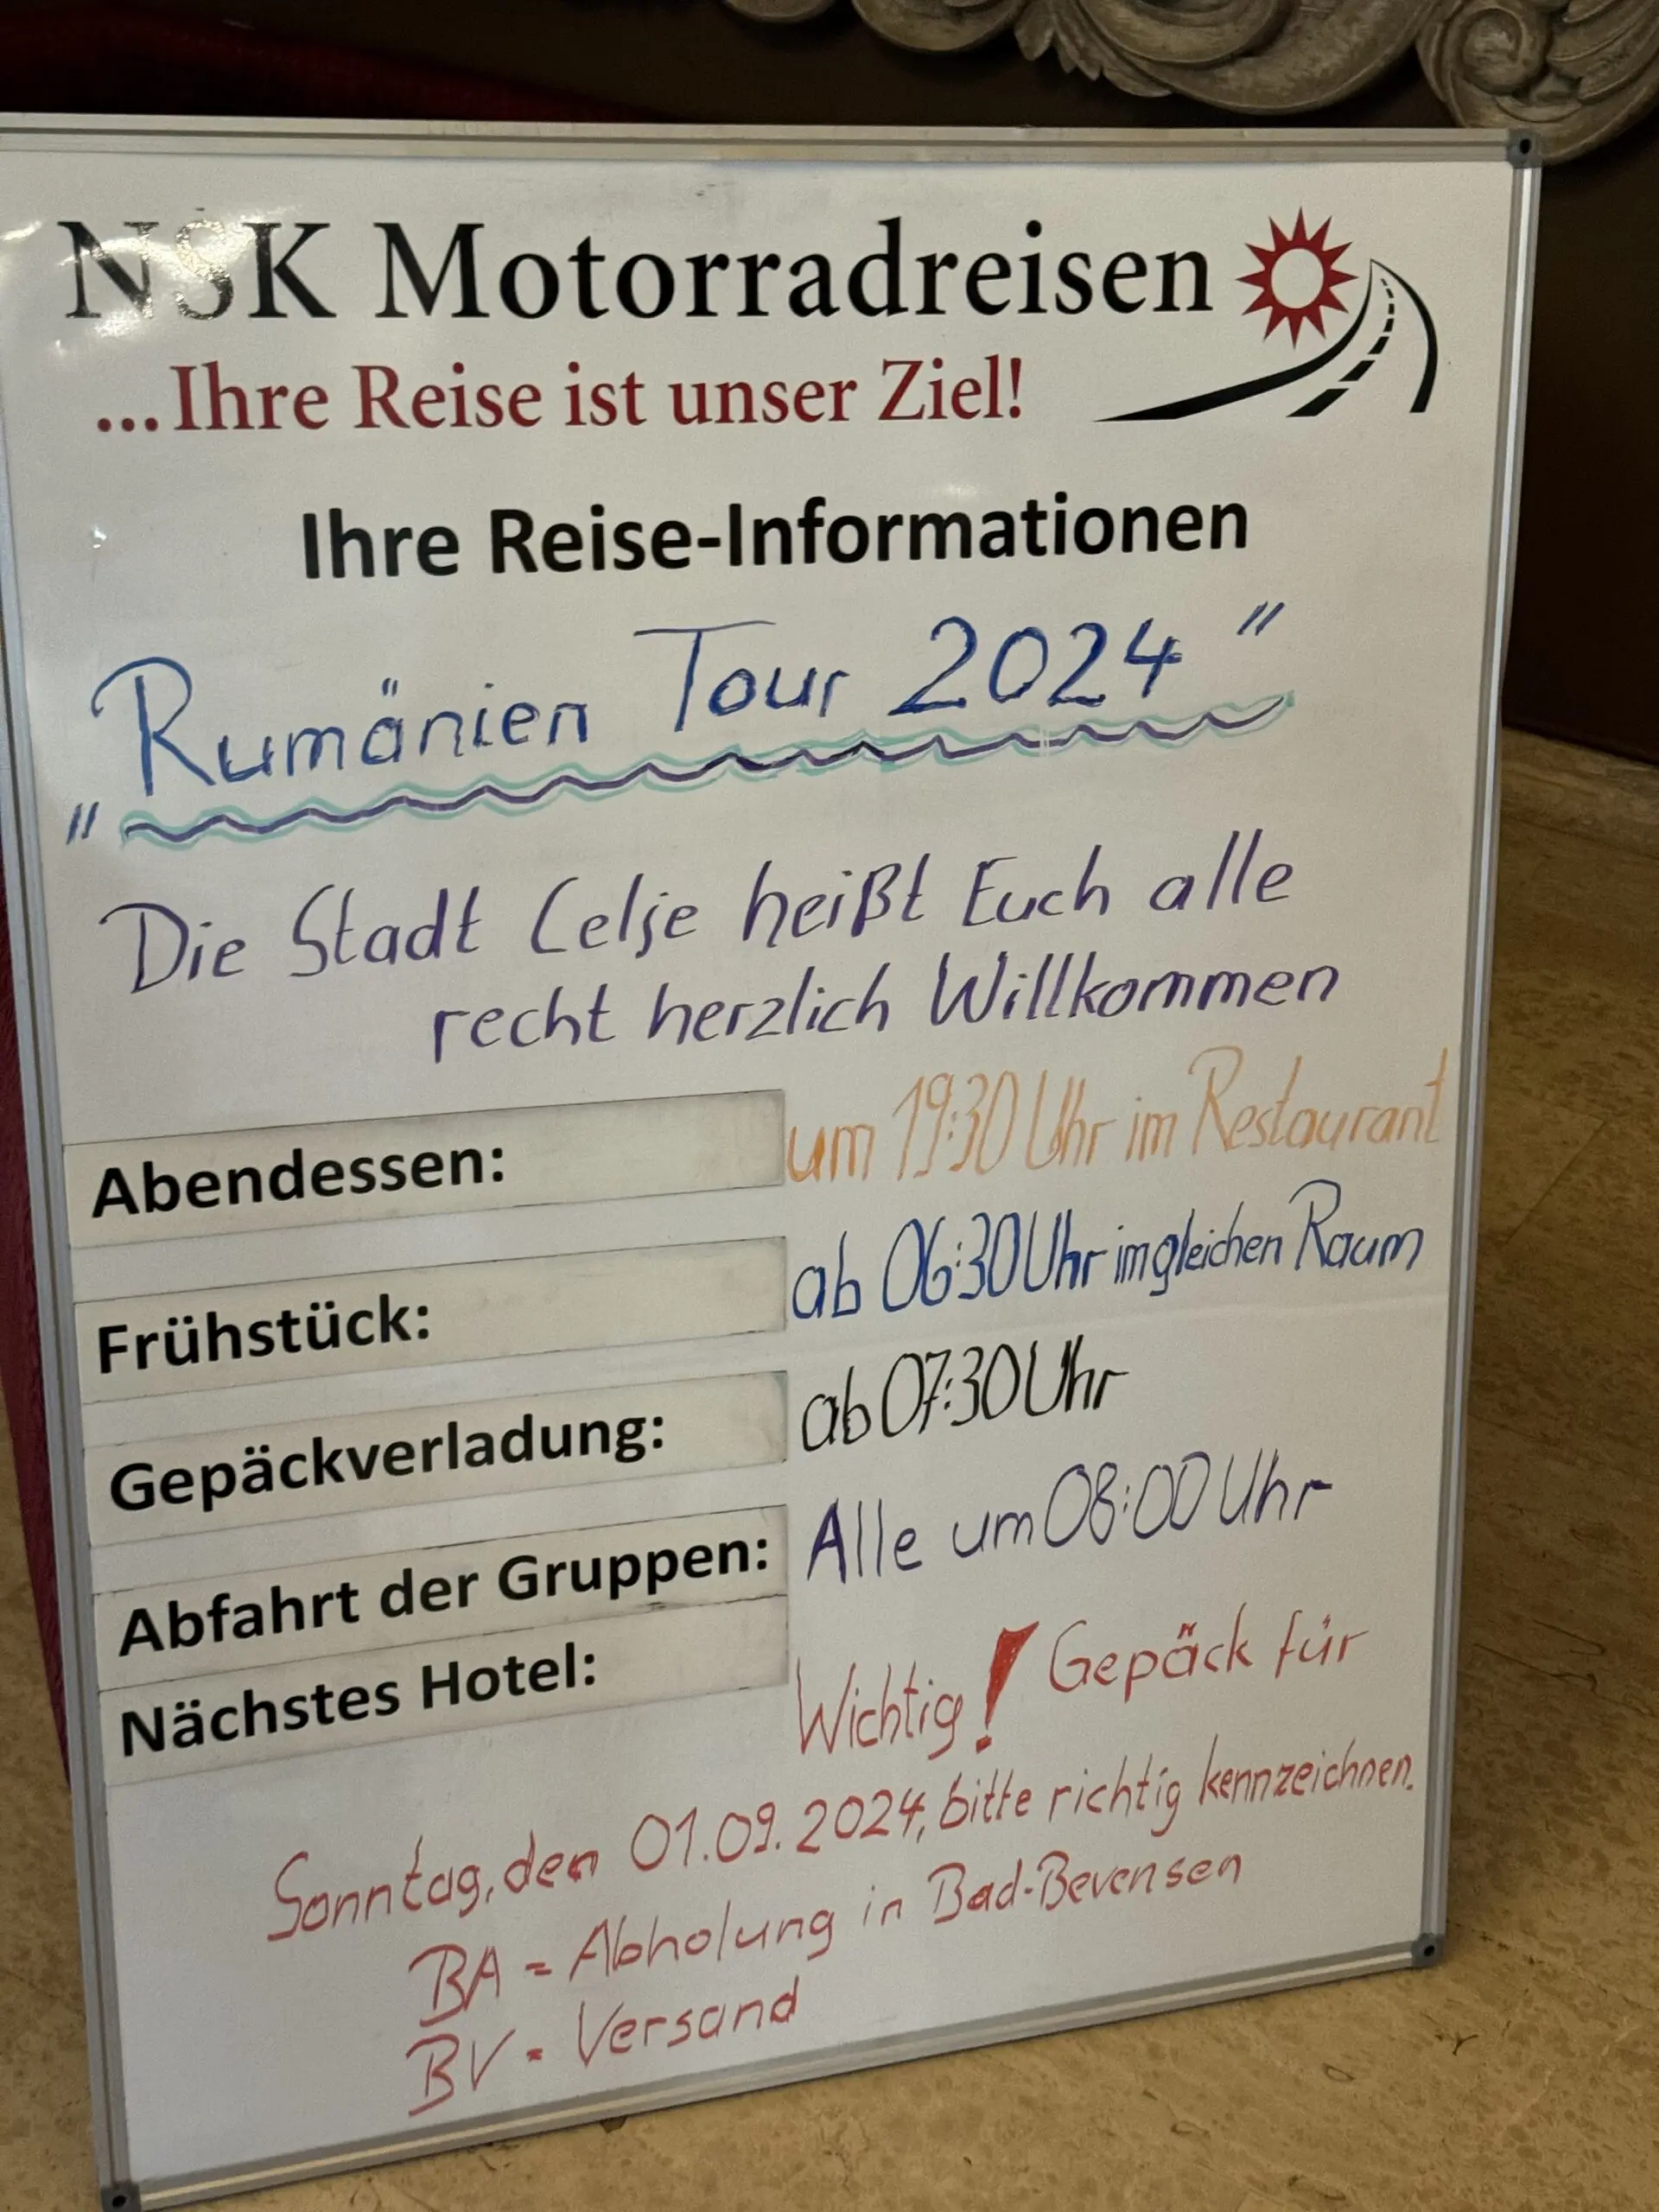 NSK Motorradreisen
...Ihre Reise ist unser Ziel!
Ihre Reise-Informationen
„Rumänien Tour 2024“
Die Stadt Celje heißt Euch alle
recht herzlich Willkommen
Abendessen: um 19:30 Uhr im Restaurant
Frühstück: ab 06:30 Uhr im gleichen Raum
Gepäckverladung: ab 07:30 Uhr
Abfahrt der Gruppen: Alle um 08:00 Uhr
Nächstes Hotel:
Wichtig! Gepäck für
Sonntag, den 01.09.2024, bitte richtig kennzeichnen.
BA = Abholung in Bad-Bevensen
BV = Versand